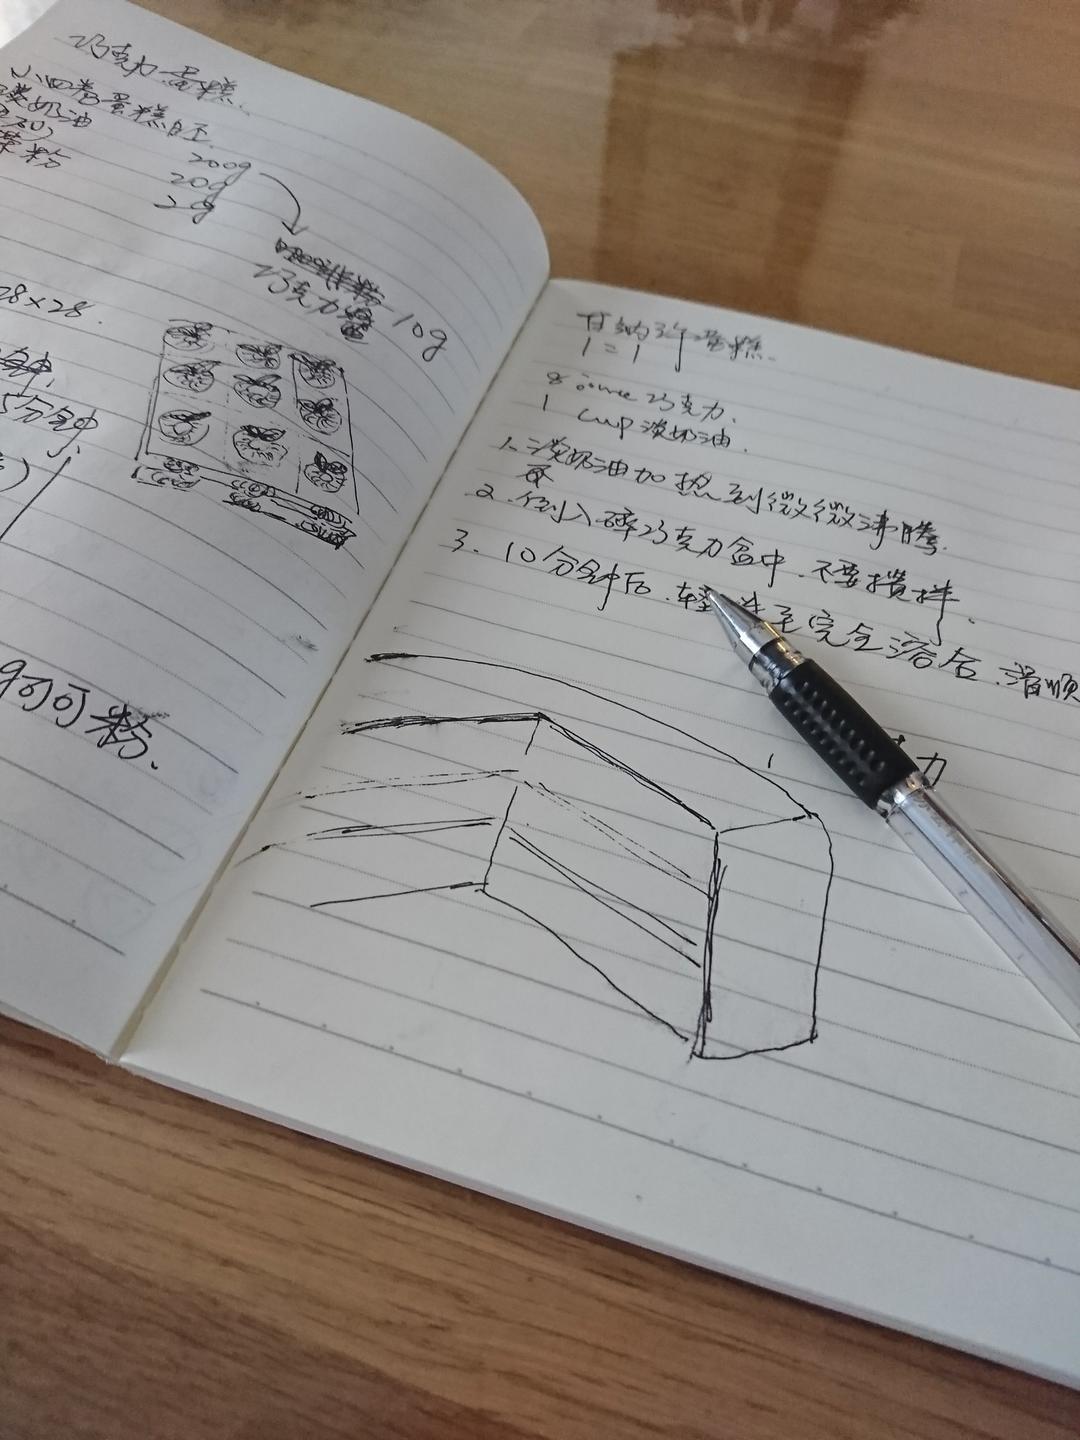 巧克力蛋糕.
小四卷蛋糕胚.
淡奶油 200g
20g
茶粉 2g
巧克力 10g
28×28.
5分钟
g可可粉.
甘纳许蛋糕.
1=1
8 ounce 巧克力.
1 cup 淡奶油.
1. 淡奶油加热到微微沸腾.
2. 倒入碎巧克力盆中. 不要搅拌.
3. 10分钟后. 轻 至完全溶后. 滑顺
力